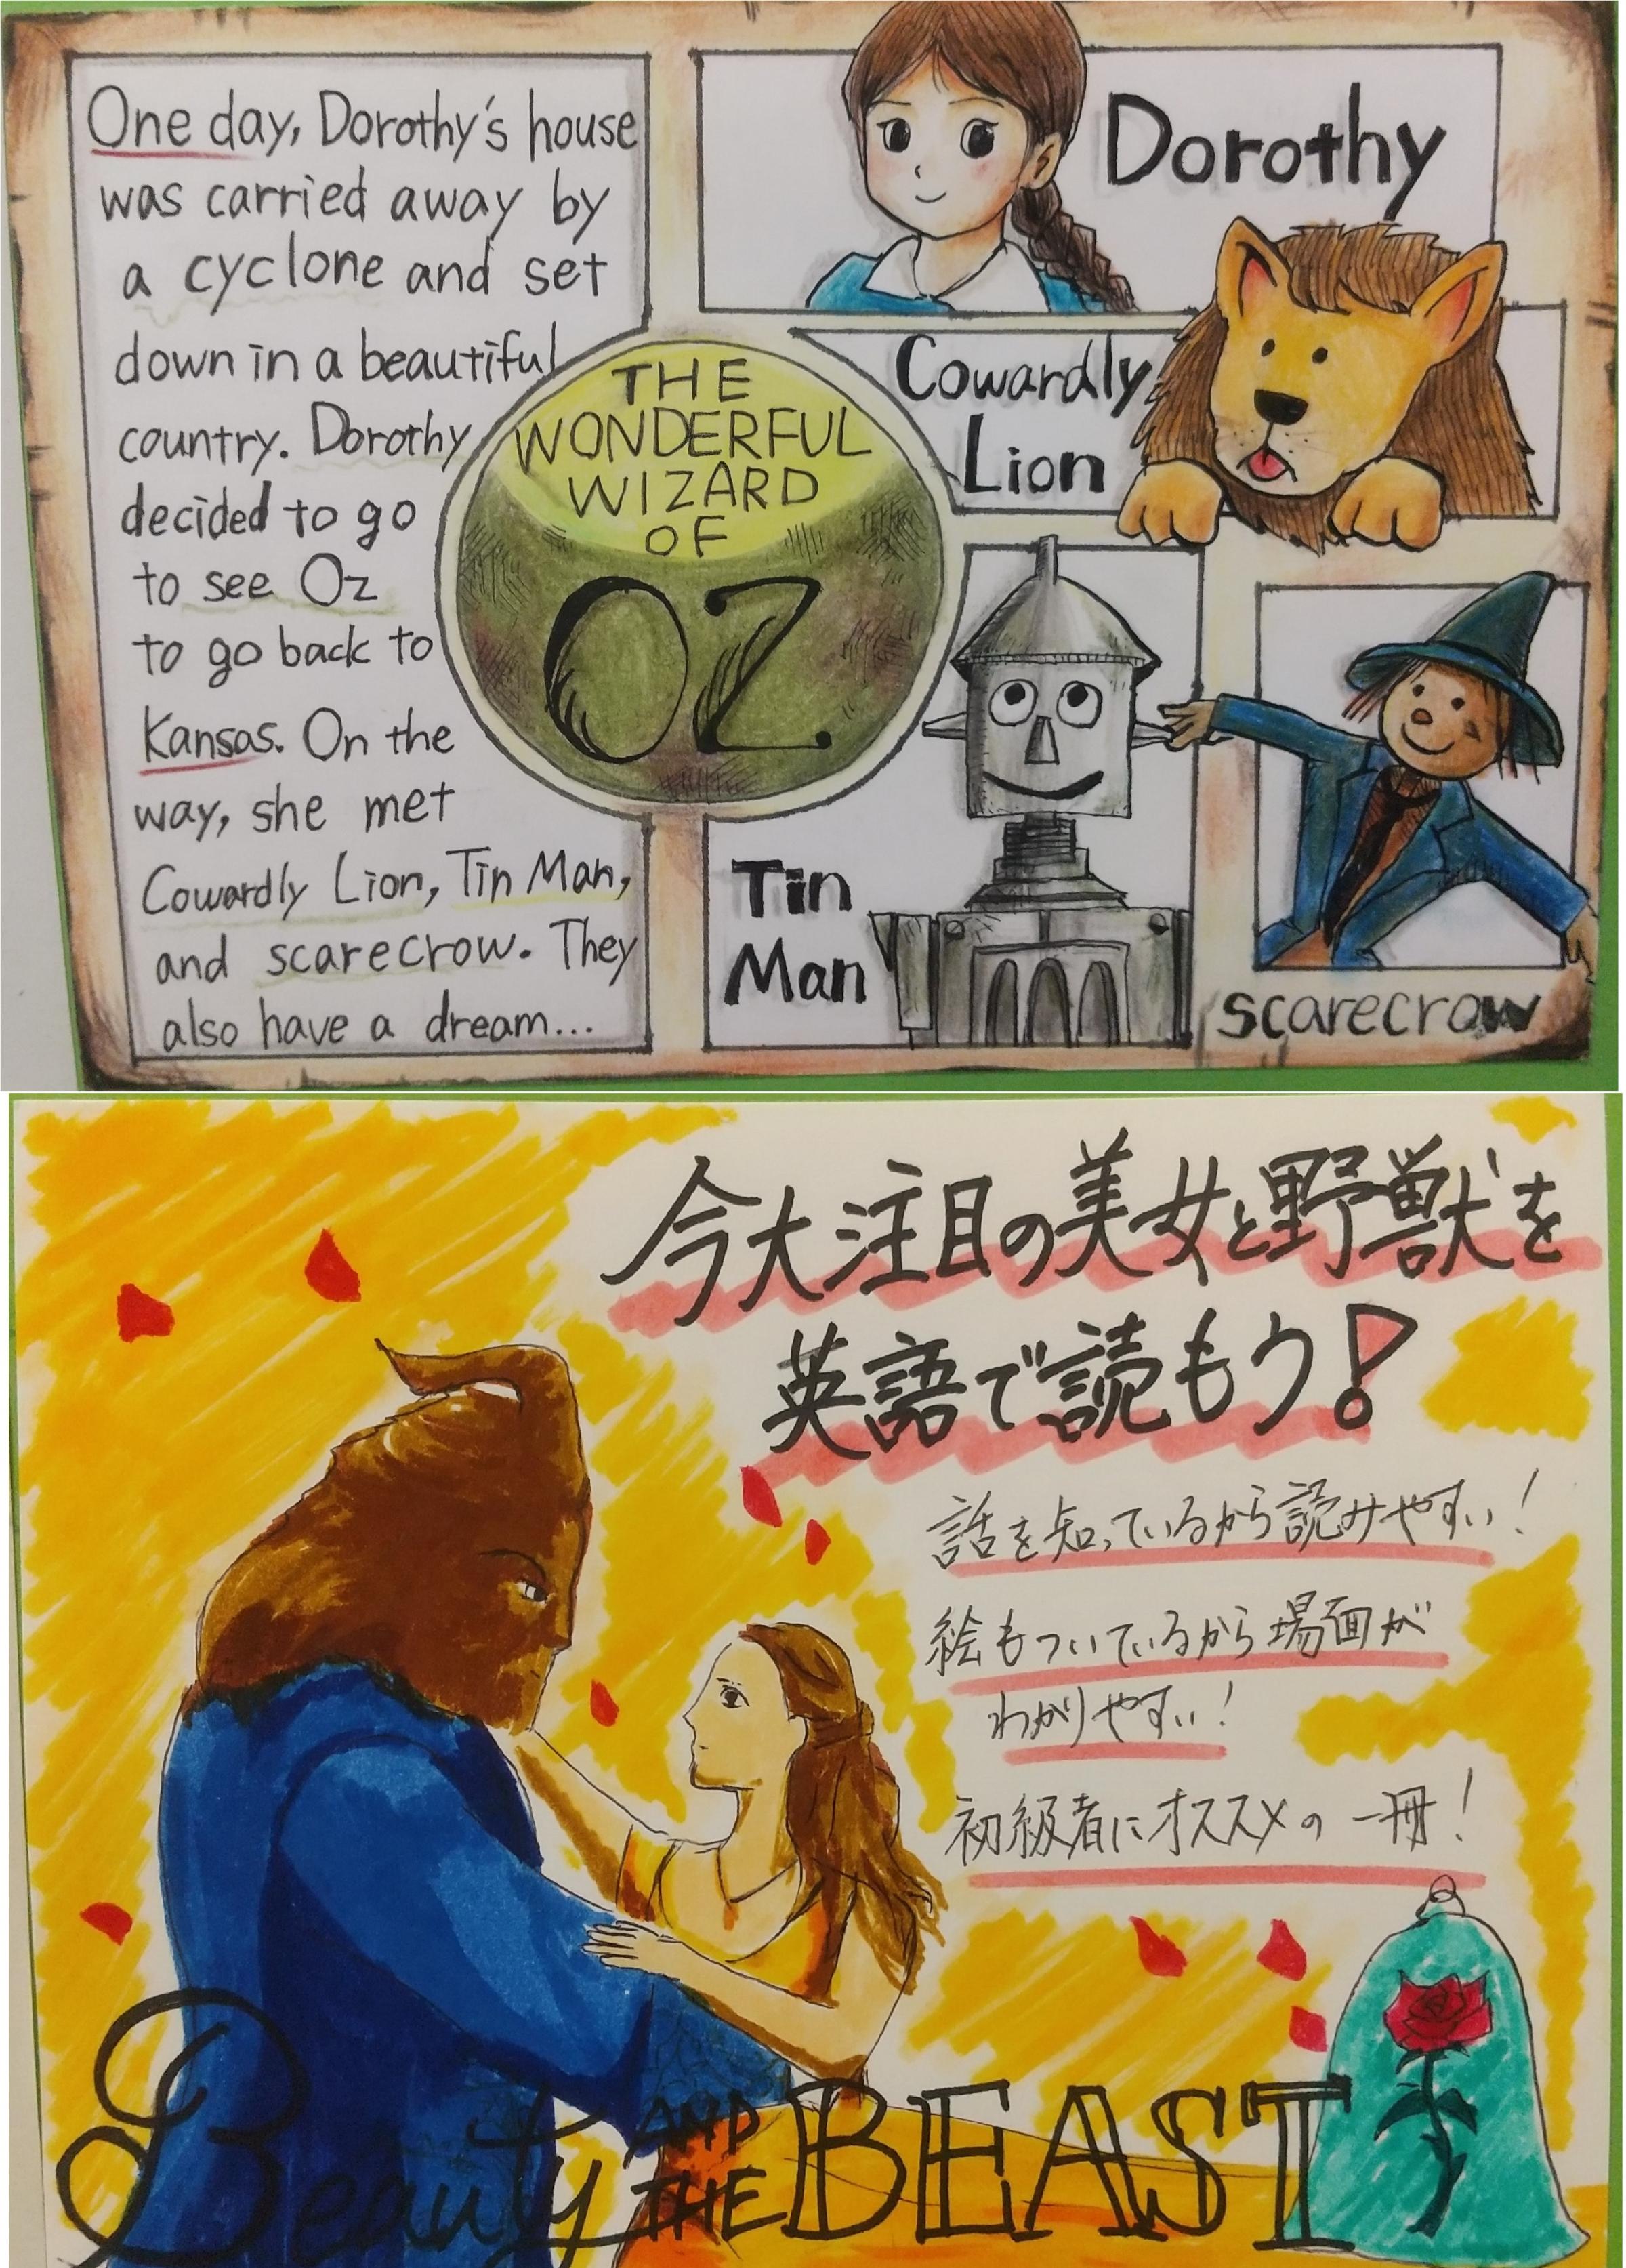 One day, Dorothy's house
was carried away by
a cyclone and set
down in a beautiful
country. Dorothy
decided to go
to see Oz
to go back to
Kansas. On the
way, she met
Cowardly Lion, Tin Man,
and scarecrow. They
also have a dream...
THE
WONDERFUL
WIZARD
OF
OZ
Dorothy
Cowardly
Lion
Tin
Man
scarecrow
今大注目の美女と野獣を
英語で読もう!
話を知っているから読みやすい!
絵もついているから場面が
わかりやすい!
初級者にオススメの一冊!
Beauty AND
THE BEAST